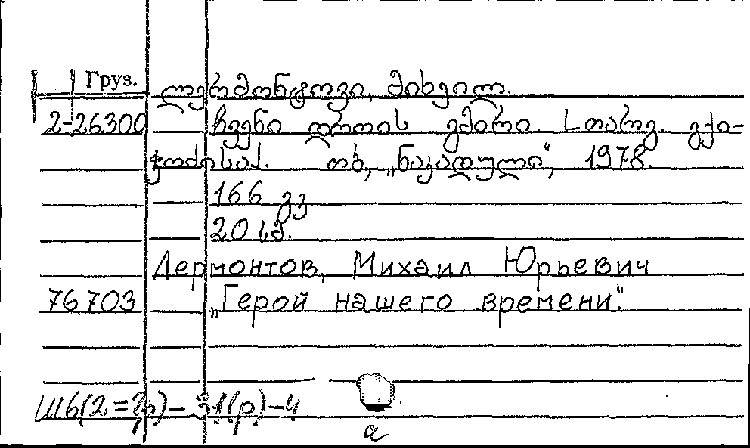 Груз. ლერმონტოვი, მიხეილ.
2-26300 ჩვენი დროის გმირი. [თარგ. გ. ქი-
ქოძისა]. თბ., „ნაკადული“, 1978.
166 გვ
20 კპ.
Лермонтов, Михаил Юрьевич
76703 „Герой нашего времени“.
Ш6(2=Гр)-31(р)-4